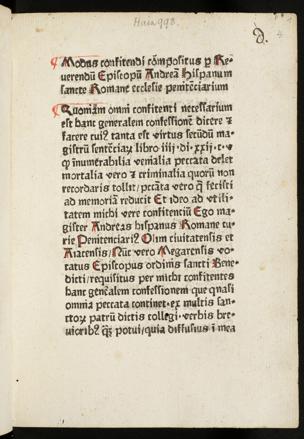 Hain 998.
D.
¶ Modus confitendi cōmpositus ꝑ Re-
uerendū Episcopū Andreā hispanum
sancte Romane ecclesie penitēciarium
¶ Quoniam omni confitenti necessarium
est hanc generalem confessionē dicere ⁊
facere cuiꝰ tanta est virtus secūdū ma-
gistrū sentēciaꝝ libro iiij · di · xxij · c · v
ꝙ īnumerabilia venialia peccata delet
mortalia vero ⁊ criminalia quorū non
recordaris tollit / pctāta vero ꝙ fecisti
ad memoriā reducit Et ideo ad vtili-
tatem michi vere confitenciū Ego ma-
gister Andreas hispanus Romane cu-
rie Penitenciariꝰ Olim ciuitatensis et
Aiacensis / Nūc vero Megarensis vo-
catus Episcopus ordinis sancti Bene-
dicti / requisitus per michi confitentes
hanc genēalem confessionem que quasi
omnia peccata continet · ex multis san-
ctoꝝ patrū dictis collegi · verbis bre-
uioribꝰ qꝫ potui / quia diffusius ī mea